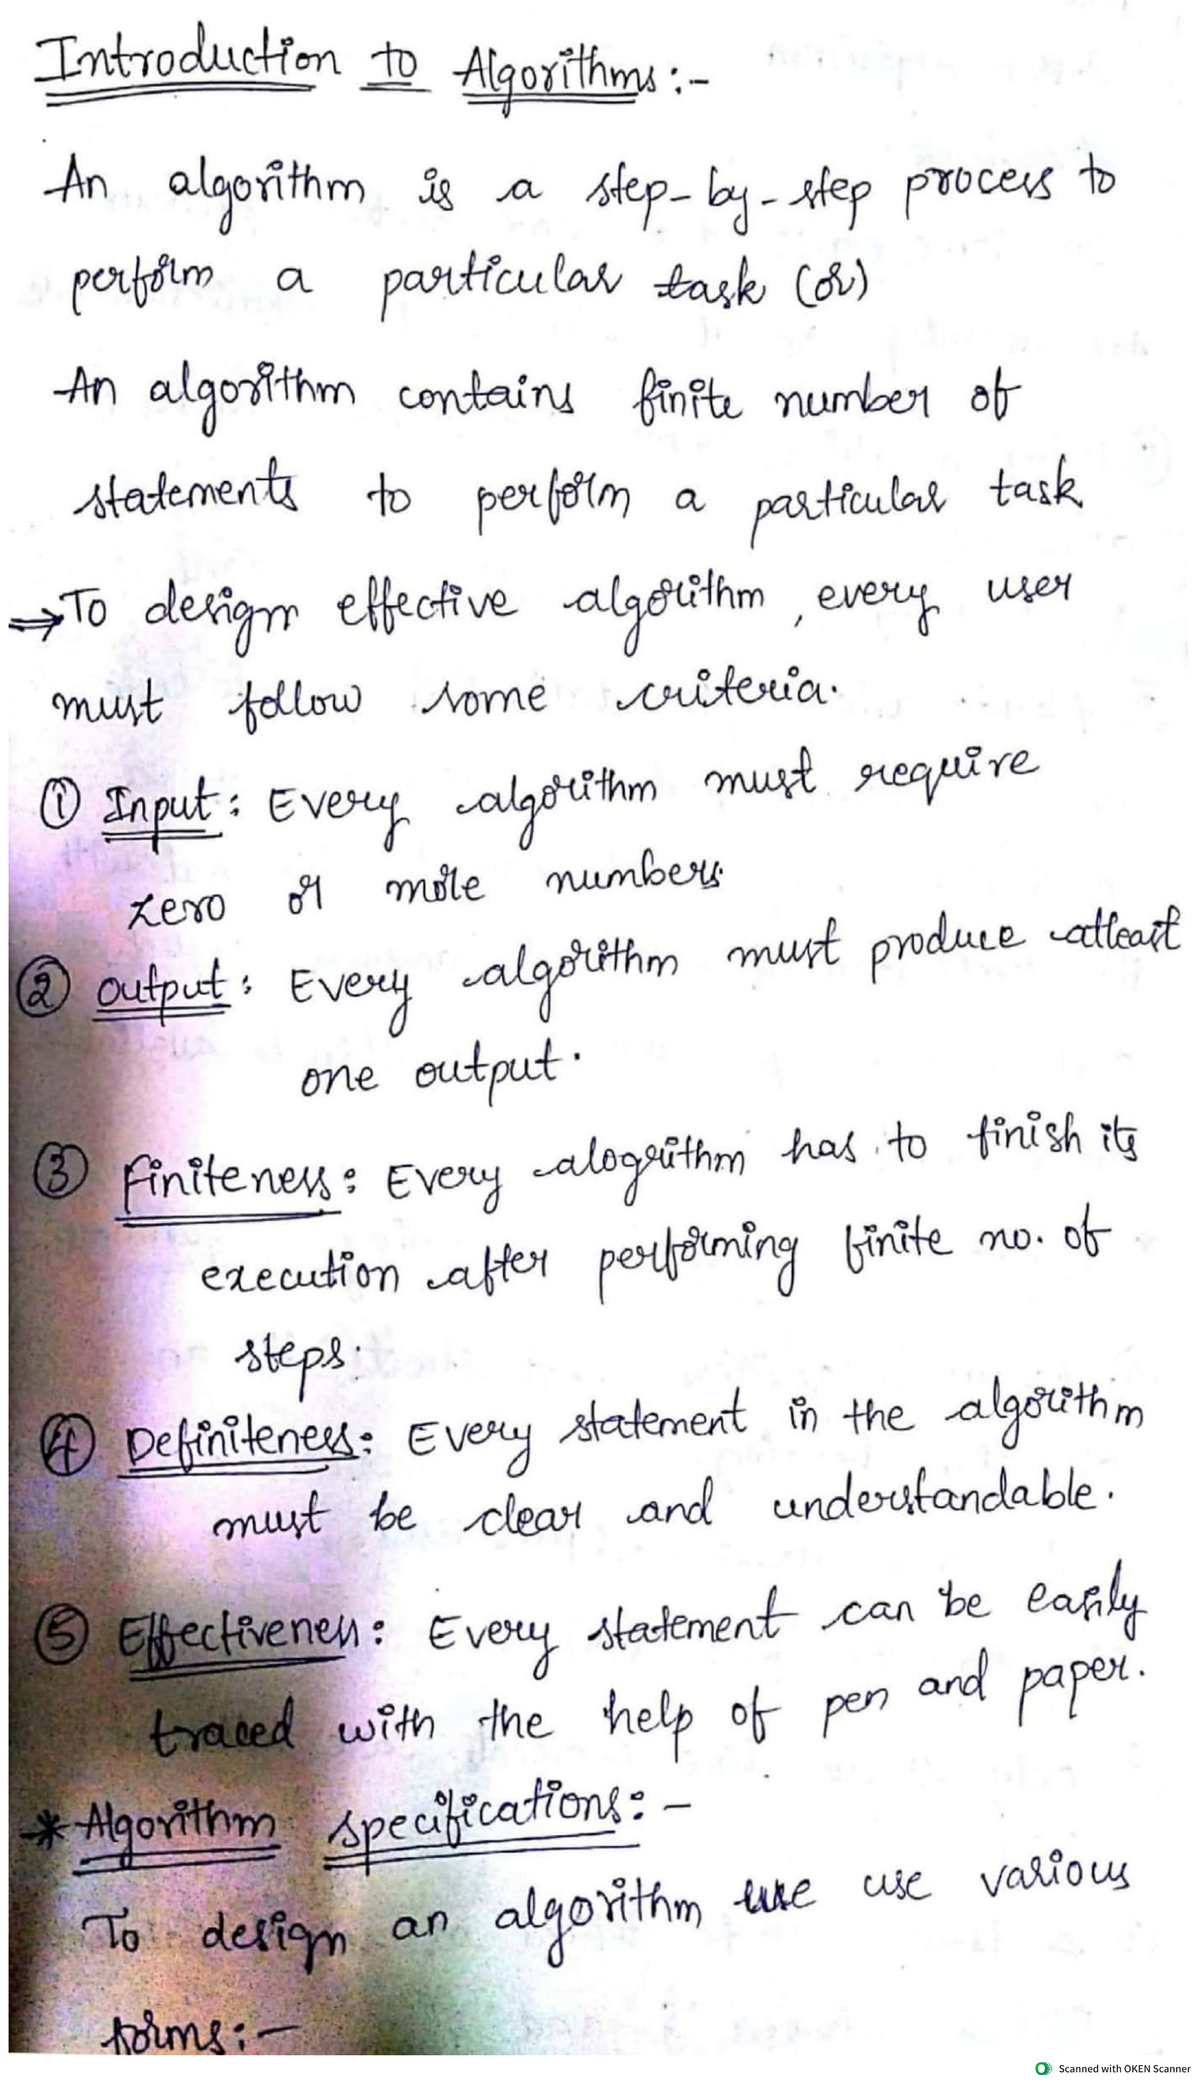 Introduction to Algorithms:-
An algorithm is a step-by-step process to
perform a particular task (or)
An algorithm contains finite number of
statements to perform a particular task
⇒To design effective algorithm, every user
must follow some criteria.
① Input: Every algorithm must require
zero or more numbers.
② output: Every algorithm must produce atleast
one output.
③ finiteness: Every alogorithm has to finish its
execution after performing finite no. of
steps.
④ Definiteness: Every statement in the algorithm
must be clear and understandable.
⑤ Effectiveness: Every statement can be easily
traced with the help of pen and paper.
* Algorithm specifications:-
To design an algorithm use various
forms:-
Scanned with OKEN Scanner